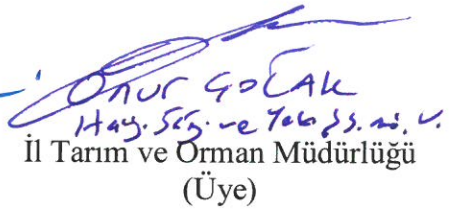 Onur ÇOLAK
Hay. Sağ. ve Yet. Şb. Md. V.
İl Tarım ve Orman Müdürlüğü
(Üye)